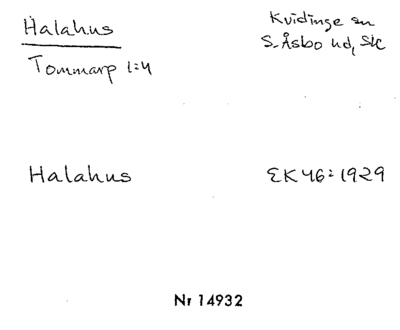 Halahus
Kvidinge sn
Tommarp 1:4
S. Åsbo hd, Sk
Halahus
EK 46: 1929
Nr 14932